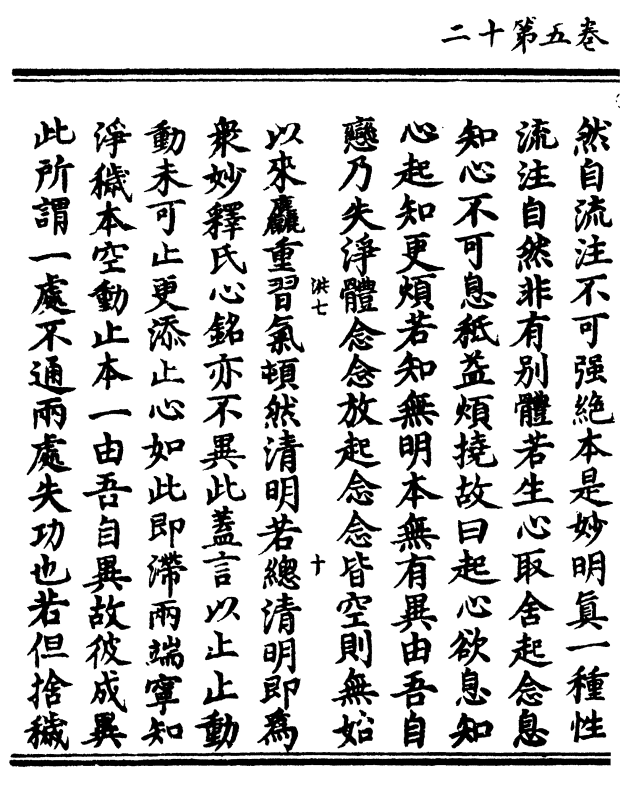 卷五第十二
然自流注不可强絶本是妙明真一種性
流注自然非有别體若生心取舍起念息
知心不可息秪益煩撓故曰起心欲息知
心起知更煩若知無明本無有異由吾自
戀乃失淨體念念放起念念皆空則無始
洪七
以來麤重習氣頓然清明若總清明即爲
十
衆妙釋氏心銘亦不異此蓋言以止止動
動未可止更添止心如此即滯兩端寧知
淨穢本空動止本一由吾自異故彼成異
此所謂一處不通兩處失功也若但捨穢